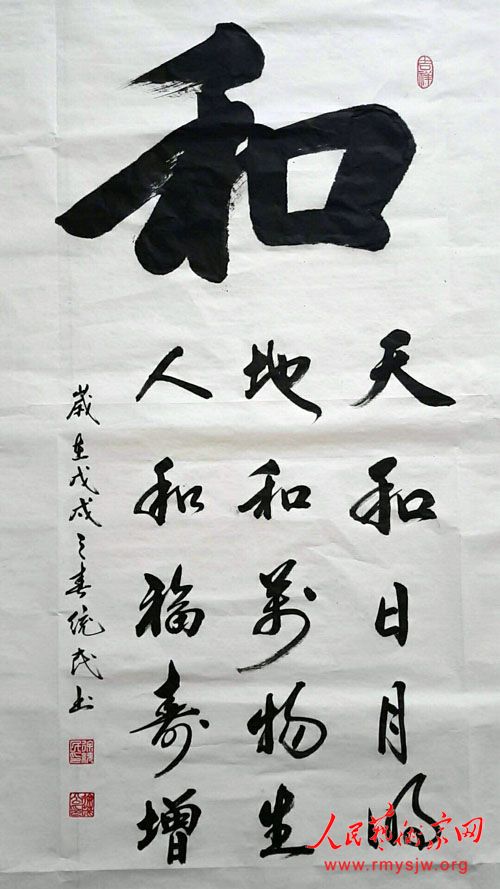 和
天和日月明
地和萬物生
人和福壽增
歲在戊戌之春統民书
吉祥
人民艺术家网
www.rmysjw.org